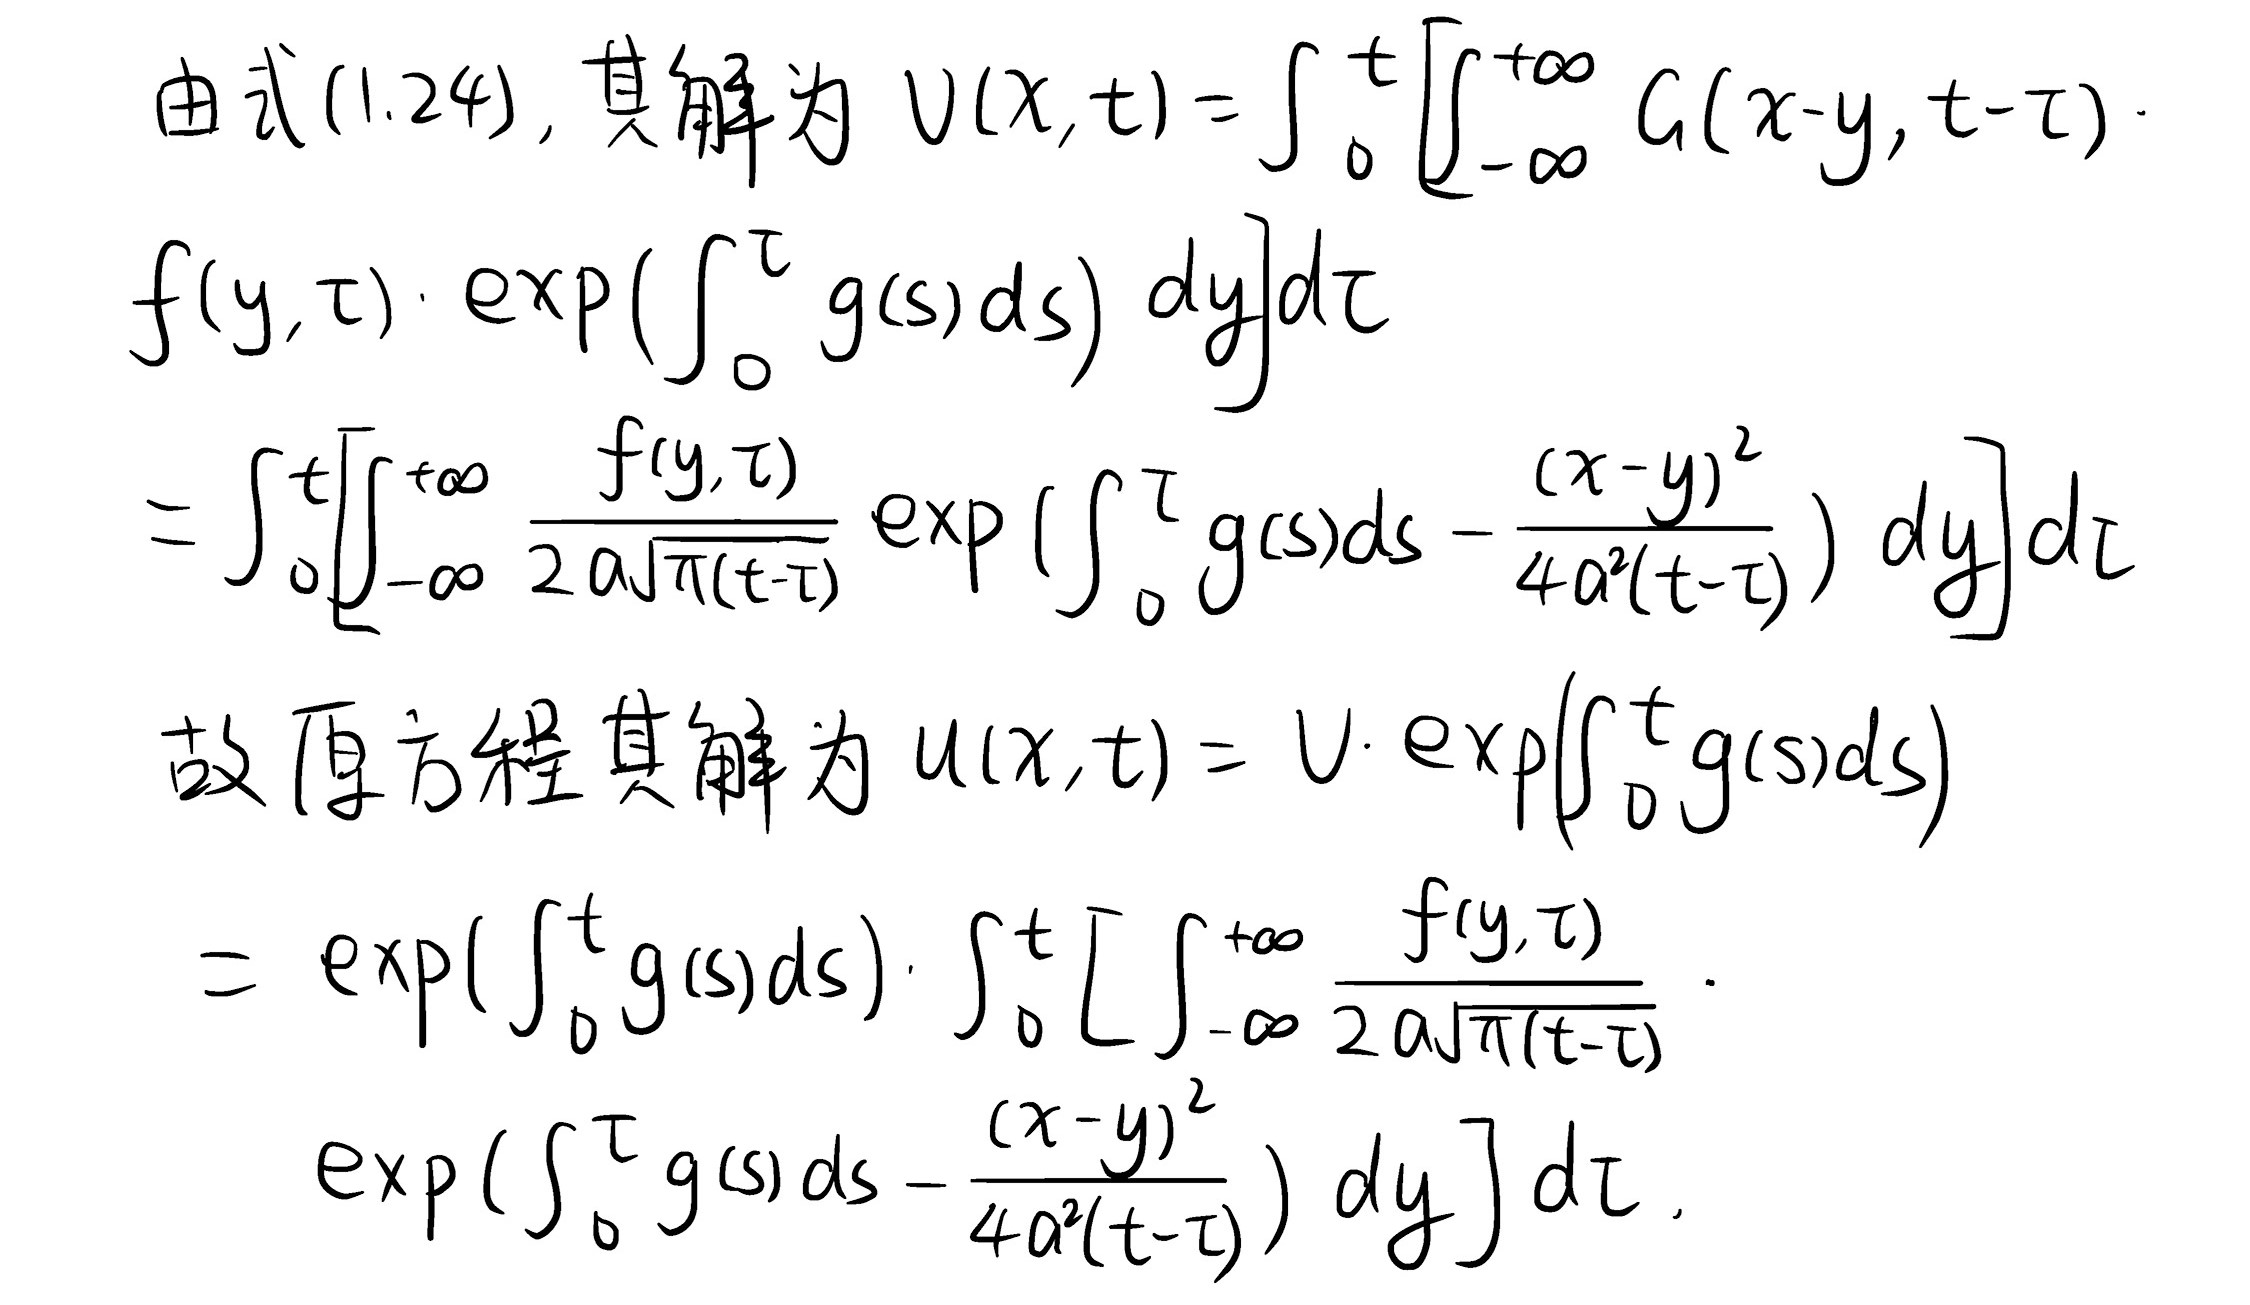 由式(1.24),其解为 V(x,t) = ∫₀ᵗ [∫₋∞⁺∞ G(x-y, t-τ) ·
f(y,τ) · exp(∫₀^τ g(s)ds) dy]dτ
= ∫₀ᵗ [∫₋∞⁺∞ f(y,τ) / (2a√(π(t-τ))) exp(∫₀^τ g(s)ds - (x-y)² / (4a²(t-τ))) dy]dτ
故原方程其解为 u(x,t) = V · exp(∫₀ᵗ g(s)ds)
= exp(∫₀ᵗ g(s)ds) · ∫₀ᵗ [∫₋∞⁺∞ f(y,τ) / (2a√(π(t-τ))) ·
exp(∫₀^τ g(s)ds - (x-y)² / (4a²(t-τ))) dy] dτ.